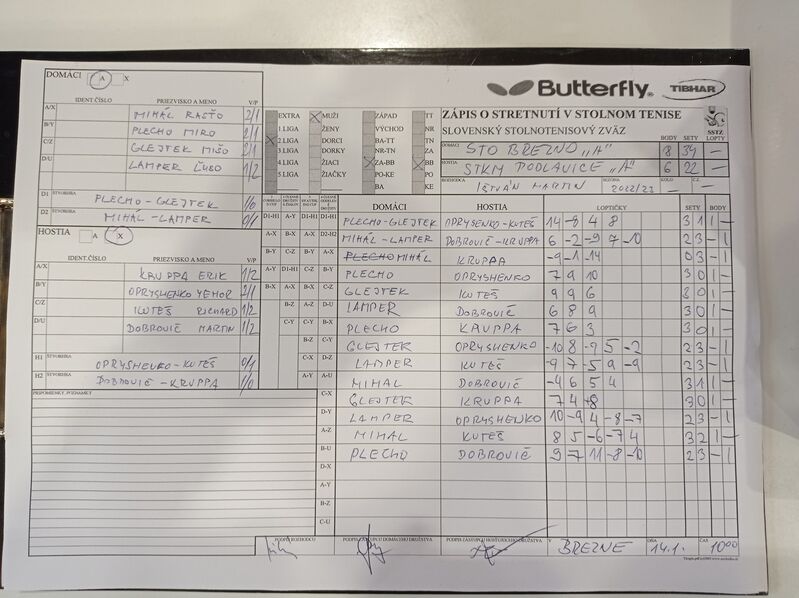 DOMÁCI A X
IDENT.ČÍSLO PRIEZVISKO A MENO V/P
A/X MIHÁL RASŤO 2/1
B/Y PLECHO MIRO 2/1
C/Z GLEJTEK MIŠO 2/1
D/U LAMPER ĽUBO 1/2
D1 ŠTVORHRA PLECHO - GLEJTEK 1/0
D2 ŠTVORHRA MIHAL - LAMPER 0/1
HOSTIA A X
IDENT.ČÍSLO PRIEZVISKO A MENO V/P
A/X KRUPPA ERIK 1/2
B/Y OPRYSHENKO YEHOR 2/1
C/Z KUTEŠ RICHARD 1/2
D/U DOBROVIČ MARTIN 1/2
H1 ŠTVORHRA OPRYSHENKO - KUTEŠ 0/1
H2 ŠTVORHRA DOBROVIČ - KRUPPA 1/0
PRIPOMIENKY, POZNÁMKY
Butterfly TIBHAR
EXTRA MUŽI ZÁPAD TT
1 LIGA ŽENY VÝCHOD NR
2 LIGA DORCI BA-TT TN
3 LIGA DORKY NR-TN ZA
4 LIGA ŽIACI ZA-BB BB
5 LIGA ŽIAČKY PO-KE PO
BA KE
ZÁPIS O STRETNUTÍ V STOLNOM TENISE
SLOVENSKÝ STOLNOTENISOVÝ ZVÄZ
SSTZ
BODY SETY LOPTY
DOMÁCI STO BREZNO „A" 8 34 —
HOSTIA STKM PODLAVICE "A" 6 22 —
ROZHODCA IŠTVÁN MARTIN SEZÓNA 2022/23 KOLO — Č.Z. —
DOMÁCI HOSTIA LOPTIČKY SETY BODY
D1-H1 A-Y D1-H1 D1-H1 PLECHO-GLEJTEK OPRYSENKO-KUTEŠ 14 -8 4 8 3 1 1 —
A-X B-X A-X D2-H2 MIHÁL-LAMPER DOBROVIČ-KRUPPA 6 -2 -9 7 -10 2 3 — 1
B-Y C-Z B-Y A-X PLECHO MIHÁL KRUPPA -9 -1 -14 0 3 — 1
A-Y D1-H1 C-Z B-Y PLECHO OPRYSHENKO 7 9 10 3 0 1 —
B-X A-X B-X C-Z GLEJTEK KUTEŠ 9 9 6 3 0 1 —
B-Z A-Z D-U LAMPER DOBROVIČ 6 8 9 3 0 1 —
C-Y C-Y B-X PLECHO KRUPPA 7 6 3 3 0 1 —
B-Z C-Y GLEJTEK OPRYSHENKO -10 8 -9 5 -2 2 3 — 1
C-X D-Z LAMPER KUTEŠ -9 7 -5 9 -9 2 3 — 1
A-Y A-U MIHAL DOBROVIČ -4 6 5 4 3 1 1 —
C-X GLEJTEK KRUPPA 7 4 8 3 0 1 —
D-Y LAMPER OPRYSHENKO 10 -9 4 -8 -7 2 3 — 1
A-Z MIHAL KUTEŠ 8 5 -6 -7 4 3 2 1 —
B-U PLECHO DOBROVIČ 9 -7 11 -8 -10 2 3 — 1
D-X
A-Y
B-Z
C-U
PODPIS ROZHODCU PODPIS ZÁSTUPCU DOMÁCEHO DRUŽSTVA PODPIS ZÁSTUPCU HOSŤUJÚCEHO DRUŽSTVA V BREZNE DŇA 14.1. ČAS 10:00